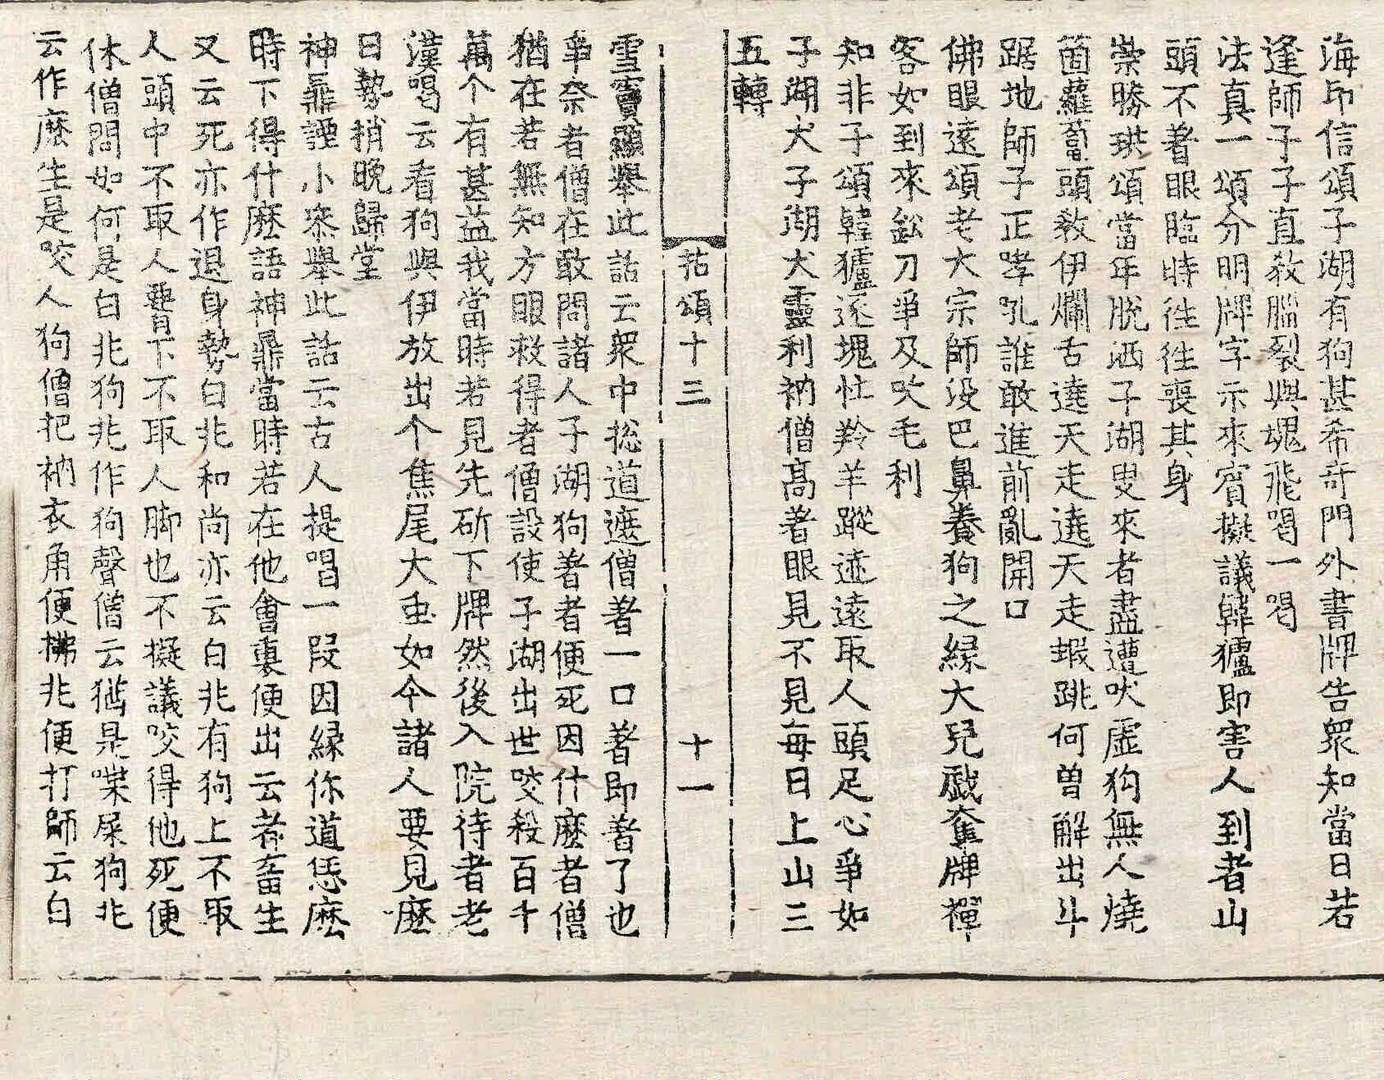 海印信頌子湖有狗甚希奇門外書牌告衆知當日若
逢師子子直敎腦裂與塊飛喝一喝
法真一頌分明牌字示來賓擬議韓獹即害人到者山
頭不著眼臨時往往喪其身
崇勝珙頌當年脫洒子湖叟來者盡遭吠虛狗無人燒
箇蘿蔔頭敎伊爛舌遶天走遶天走蝦跳何曽解出斗
踞地師子正哮吼誰敢進前亂開口
佛眼遠頌老大宗師没巴鼻養狗之縁大兒戱奪牌禪
客如到來鈆刀爭及吹毛利
知非子頌韓獹逐塊性羚羊蹤迹遠取人頭足心爭如
子湖犬子湖犬靈利衲僧髙著眼見不見每日上山三
五轉
拈頌十三 十一
雪竇顯舉此話云衆中捴道遮僧著一口著即著了也
爭奈者僧在敢問諸人子湖狗著者便死因什麽者僧
猶在若無知方眼救得者僧設使子湖出世咬殺百千
萬个有甚益我當時若見先斫下牌然後入院待者老
漢喝云看狗與伊放出个焦尾大䖝如今諸人要見麽
日勢稍晚歸堂
神鼎諲小叅舉此話云古人提唱一段因縁你道恁麽
時下得什麽語神鼎當時若在他會裏便出云者畜生
又云死亦作退身勢白兆和尚亦云白兆有狗上不取
人頭中不取人腎下不取人脚也不擬議咬得他死便
休僧問如何是白兆狗兆作狗聲僧云猶是㗖屎狗兆
云作麽生是咬人狗僧把衲衣角便拂兆便打師云白